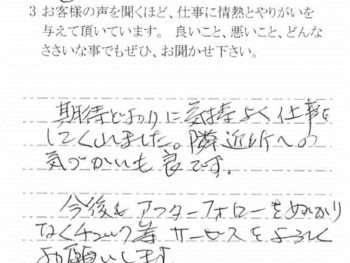 3 お客様の声を聞くほど、仕事に情熱とやりがいを
与えて頂いています。 良いこと、悪いこと、どんな
ささいな事でもぜひ、お聞かせ下さい。
期待どおりに気持よく仕事を
してくれました。隣近所への
気づかいも良です。
今後もアフターフォローをぬかり
なくチェック等 サービスをよろしく
お願いします